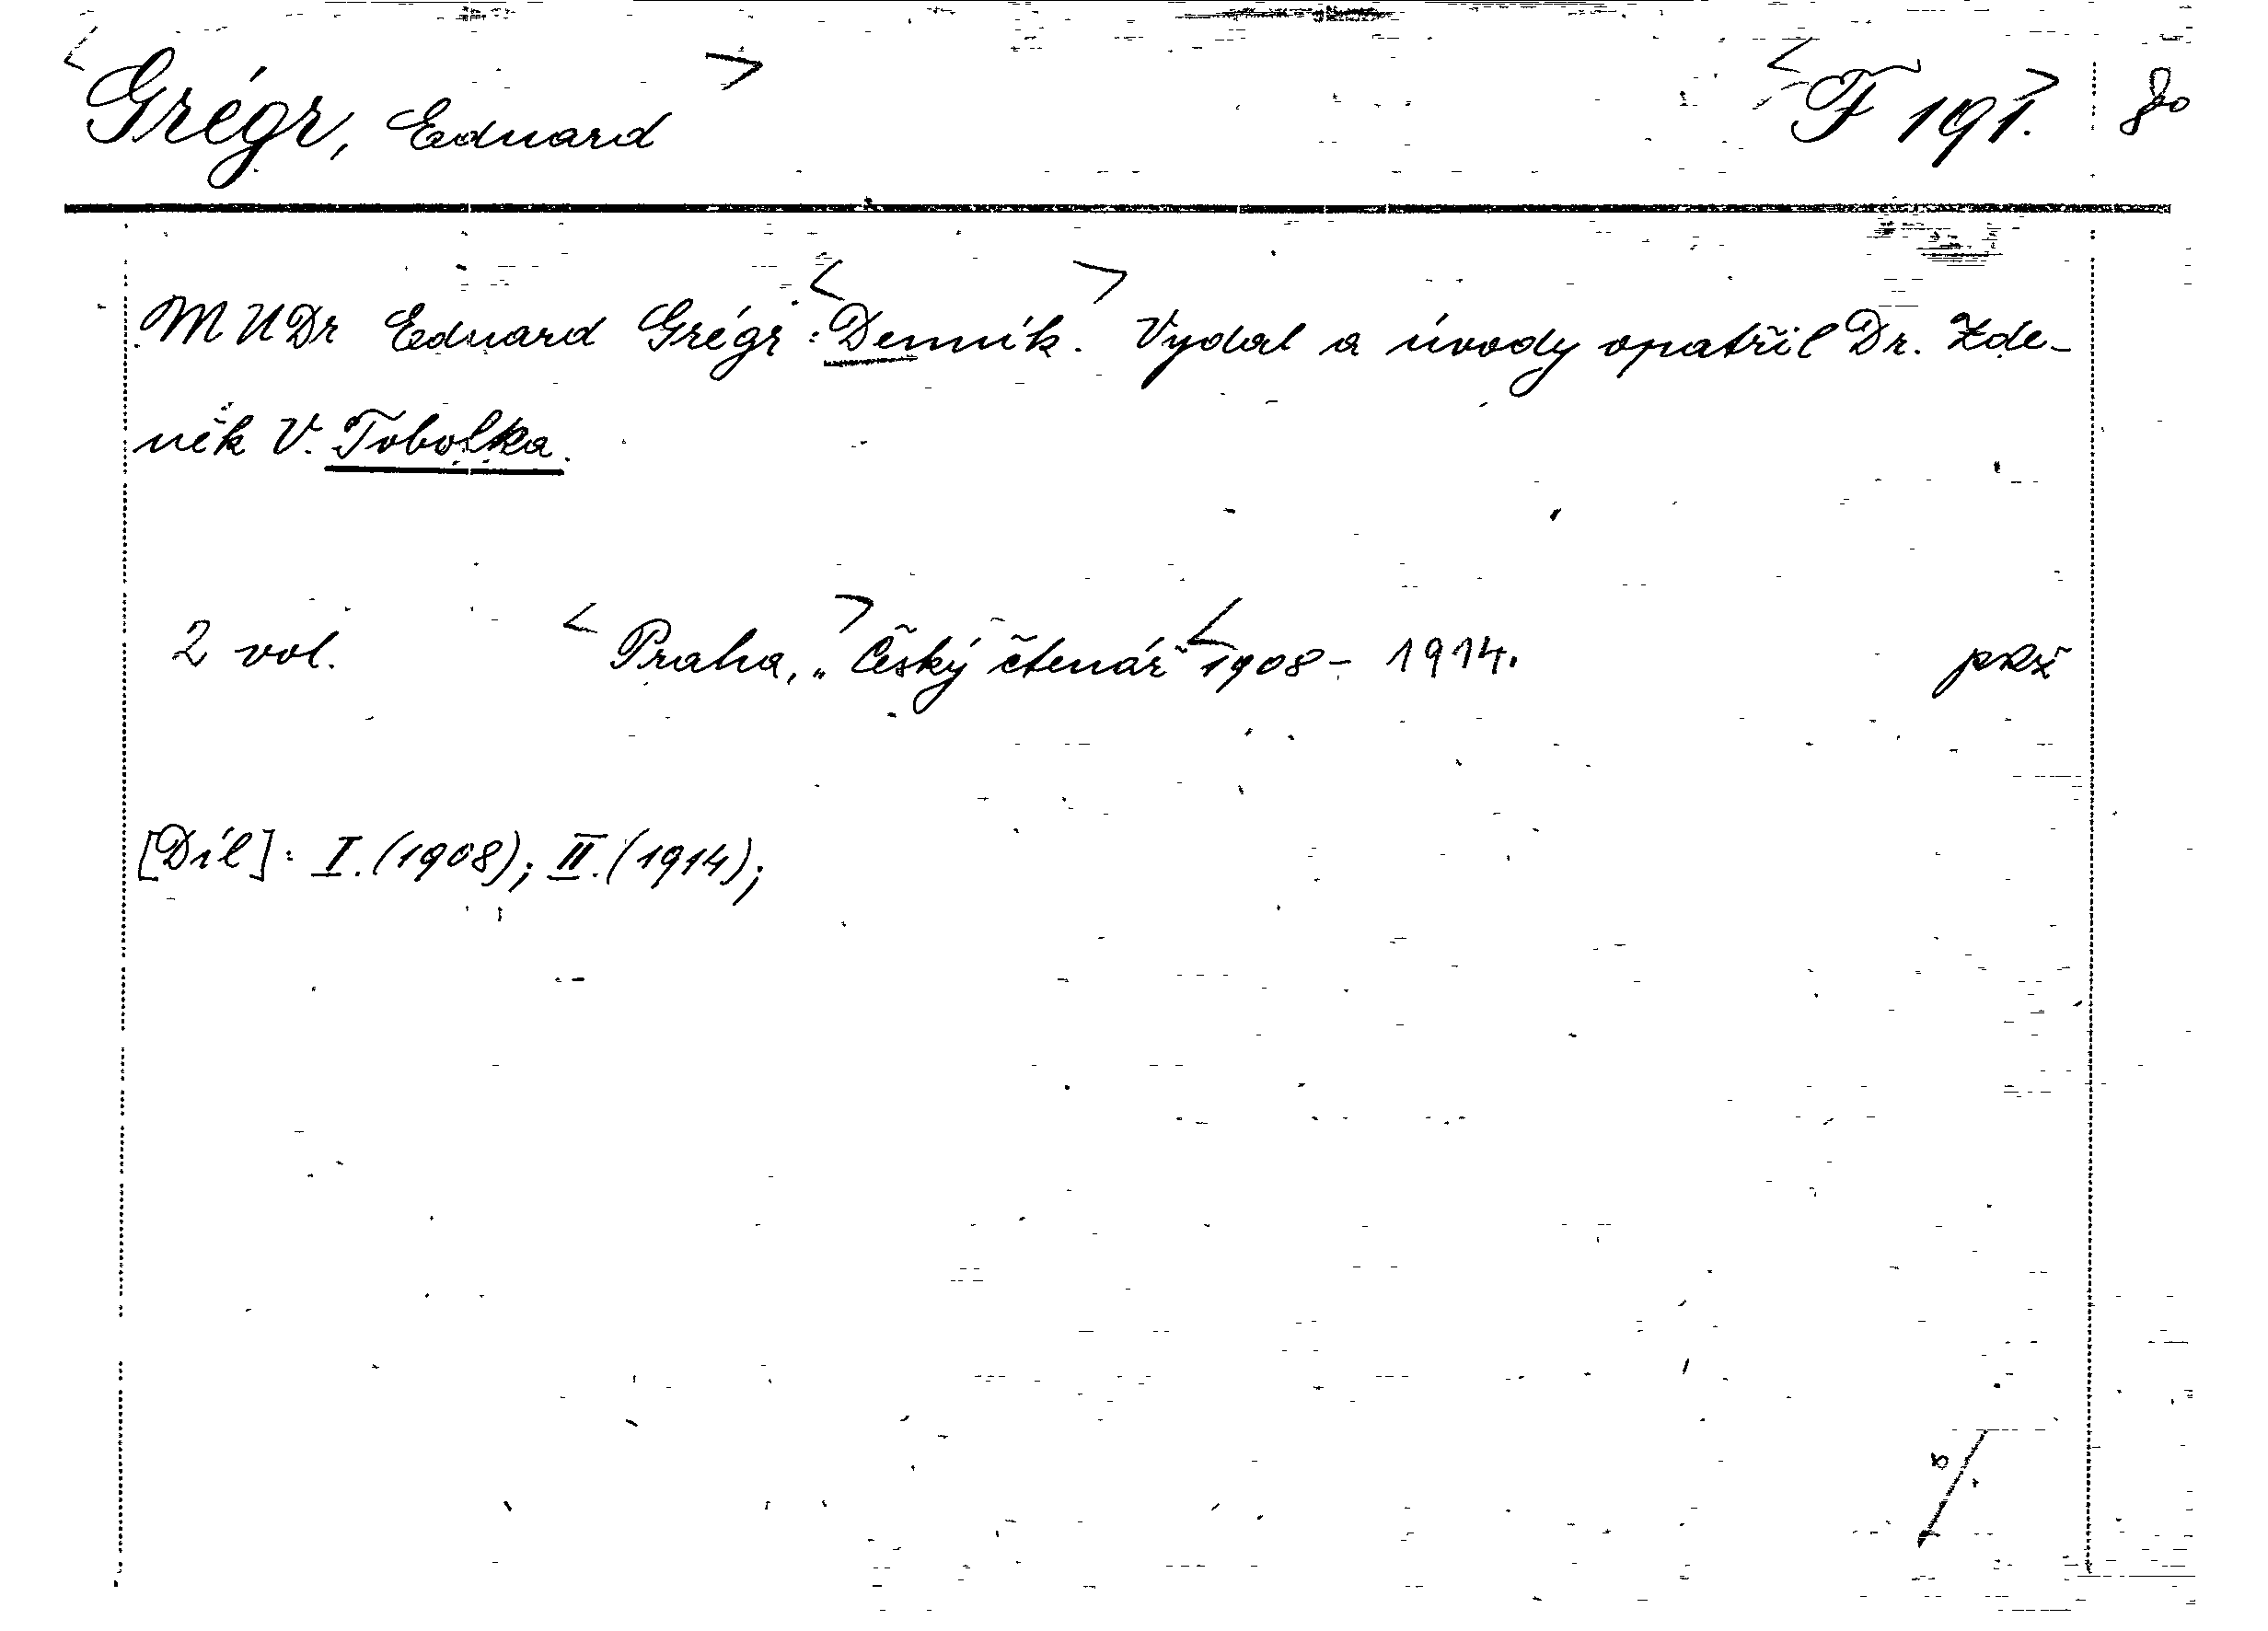 <Grégr, Eduard> <F 191.> 8°
MUDr Eduard Grégr: <Denník.> Vydal a úvody opatřil Dr. Zde-
něk V. Tobolka.
2 vol. <Praha,> „Český čtenář“ <1908 - 1914. pkž
[Díl]: I. (1908); II. (1914);